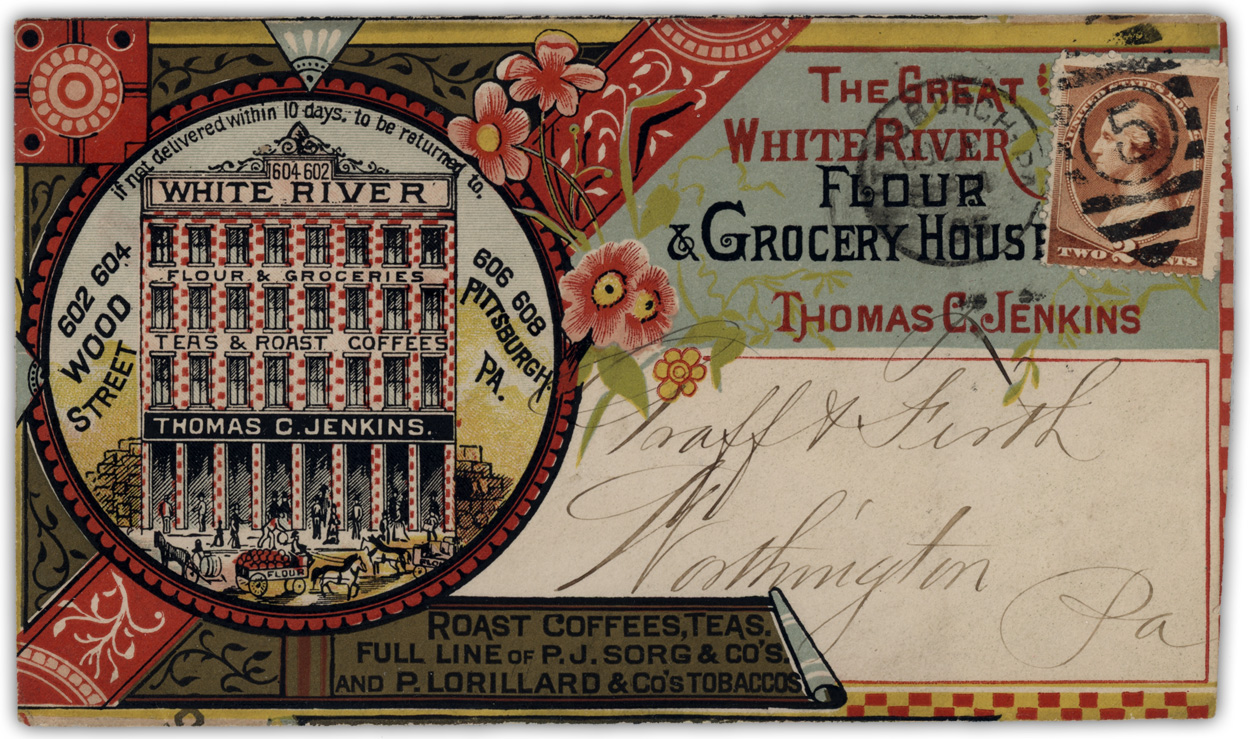 if not delivered within 10 days. to be returned to.
1604-602
WHITE RIVER
FLOUR & GROCERIES
TEAS & ROAST COFFEES
THOMAS C. JENKINS.
FLOUR
602 604
WOOD
STREET
606 608
PITTSBURGH
PA.
THE GREAT
WHITE RIVER
FLOUR
& GROCERY HOUSE
THOMAS C. JENKINS
5
TWO 2 CENTS
Graff & Firth
Worthington
Pa
ROAST COFFEES, TEAS.
FULL LINE OF P.J. SORG & CO'S.
AND P. LORILLARD & CO'S TOBACCOS